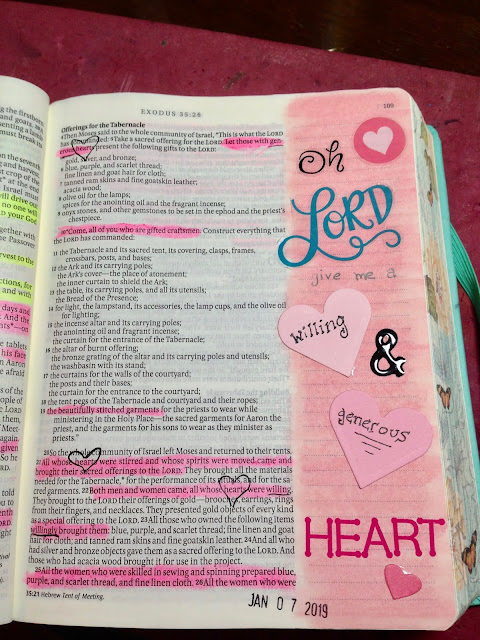 ng the firstborn
must break its
no one will
D your God
ogether with
Passover
arvest to the
ctions, for
days and
And the
nts"—on
e tablets
his face
n Aaron
e afraid
EXODUS 35:26
Offerings for the Tabernacle
4Then Moses said to the whole community of Israel, "This is what the LORD
has commanded: 5Take a sacred offering for the LORD. Let those with gen-
erous hearts present the following gifts to the LORD:
gold, silver, and bronze;
6 blue, purple, and scarlet thread;
fine linen and goat hair for cloth;
7 tanned ram skins and fine goatskin leather;
acacia wood;
8 olive oil for the lamps;
spices for the anointing oil and the fragrant incense;
9 onyx stones, and other gemstones to be set in the ephod and the priest's
chestpiece.
10"Come, all of you who are gifted craftsmen. Construct everything that
the LORD has commanded:
11 the Tabernacle and its sacred tent, its covering, clasps, frames,
crossbars, posts, and bases;
12 the Ark and its carrying poles;
the Ark's cover—the place of atonement;
the inner curtain to shield the Ark;
13 the table, its carrying poles, and all its utensils;
the Bread of the Presence;
14 for light, the lampstand, its accessories, the lamp cups, and the olive oil
for lighting;
15 the incense altar and its carrying poles;
the anointing oil and fragrant incense;
the curtain for the entrance of the Tabernacle;
16 the altar of burnt offering;
the bronze grating of the altar and its carrying poles and utensils;
the washbasin with its stand;
17 the curtains for the walls of the courtyard;
the posts and their bases;
the curtain for the entrance to the courtyard;
18 the tent pegs of the Tabernacle and courtyard and their ropes;
19 the beautifully stitched garments for the priests to wear while
ministering in the Holy Place—the sacred garments for Aaron the
priest, and the garments for his sons to wear as they minister as
priests."
20So the whole community of Israel left Moses and returned to their tents.
21All whose hearts were stirred and whose spirits were moved came and
brought their sacred offerings to the LORD. They brought all the materials
needed for the Tabernacle,* for the performance of its rituals, and for the sa-
cred garments. 22Both men and women came, all whose hearts were willing.
They brought to the LORD their offerings of gold—brooches, earrings, rings
from their fingers, and necklaces. They presented gold objects of every kind
as a special offering to the LORD. 23All those who owned the following items
willingly brought them: blue, purple, and scarlet thread; fine linen and goat
hair for cloth; and tanned ram skins and fine goatskin leather. 24And all who
had silver and bronze objects gave them as a sacred offering to the LORD. And
those who had acacia wood brought it for use in the project.
25All the women who were skilled in sewing and spinning prepared blue,
purple, and scarlet thread, and fine linen cloth. 26All the women who were
35:21 Hebrew Tent of Meeting.
Oh
LORD
give me a
willing
&
generous
HEART
JAN 07 2019